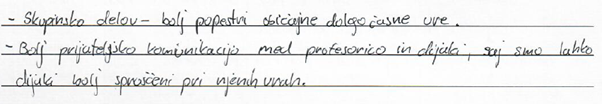 - Skupinsko delov - bolj popestri običajne dolgočasne ure.
- Bolj prijateljsko komunikacijo med profesorico in dijaki, saj smo lahko
dijaki bolj sproščeni pri njenih urah.